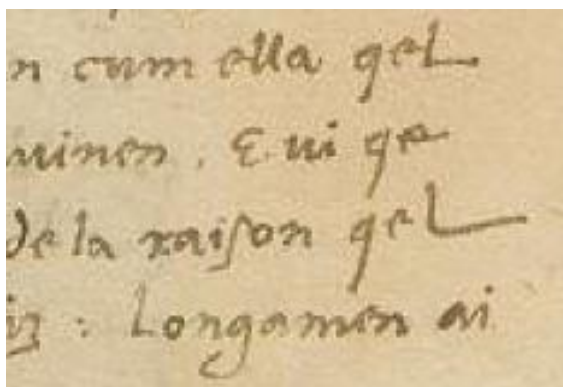 n cum ella qel
uinen. E ui qe
de la raiſon qel
iz : Longamen ai